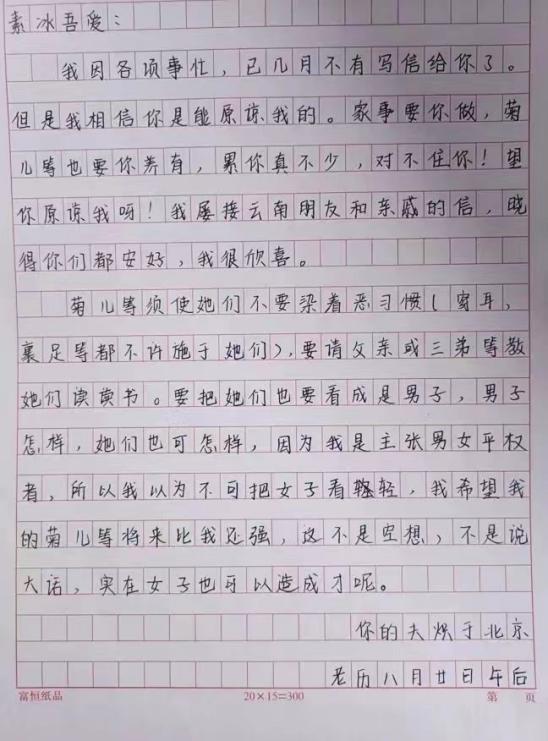 素冰吾爱：
我因各项事忙，已几月不有写信给你了。
但是我相信你是能原谅我的。家事要你做，菊
儿等也要你养育，累你真不少，对不住你！望
你原谅我呀！我屡接云南朋友和亲戚的信，晓
得你们都安好，我很欣喜。
菊儿等须使她们不要染着恶习惯（穿耳，
裹足等都不许施于她们），要请父亲或三弟等教
她们读读书。要把她们也要看成是男子，男子
怎样，她们也可怎样，因为我是主张男女平权
者，所以我以为不可把女子看轻，我希望我
的菊儿等将来比我还强，这不是空想，不是说
大话，实在女子也可以造成才呢。
你的夫炽于北京
老历八月廿日午后
富恒纸品 20×15=300 第 页